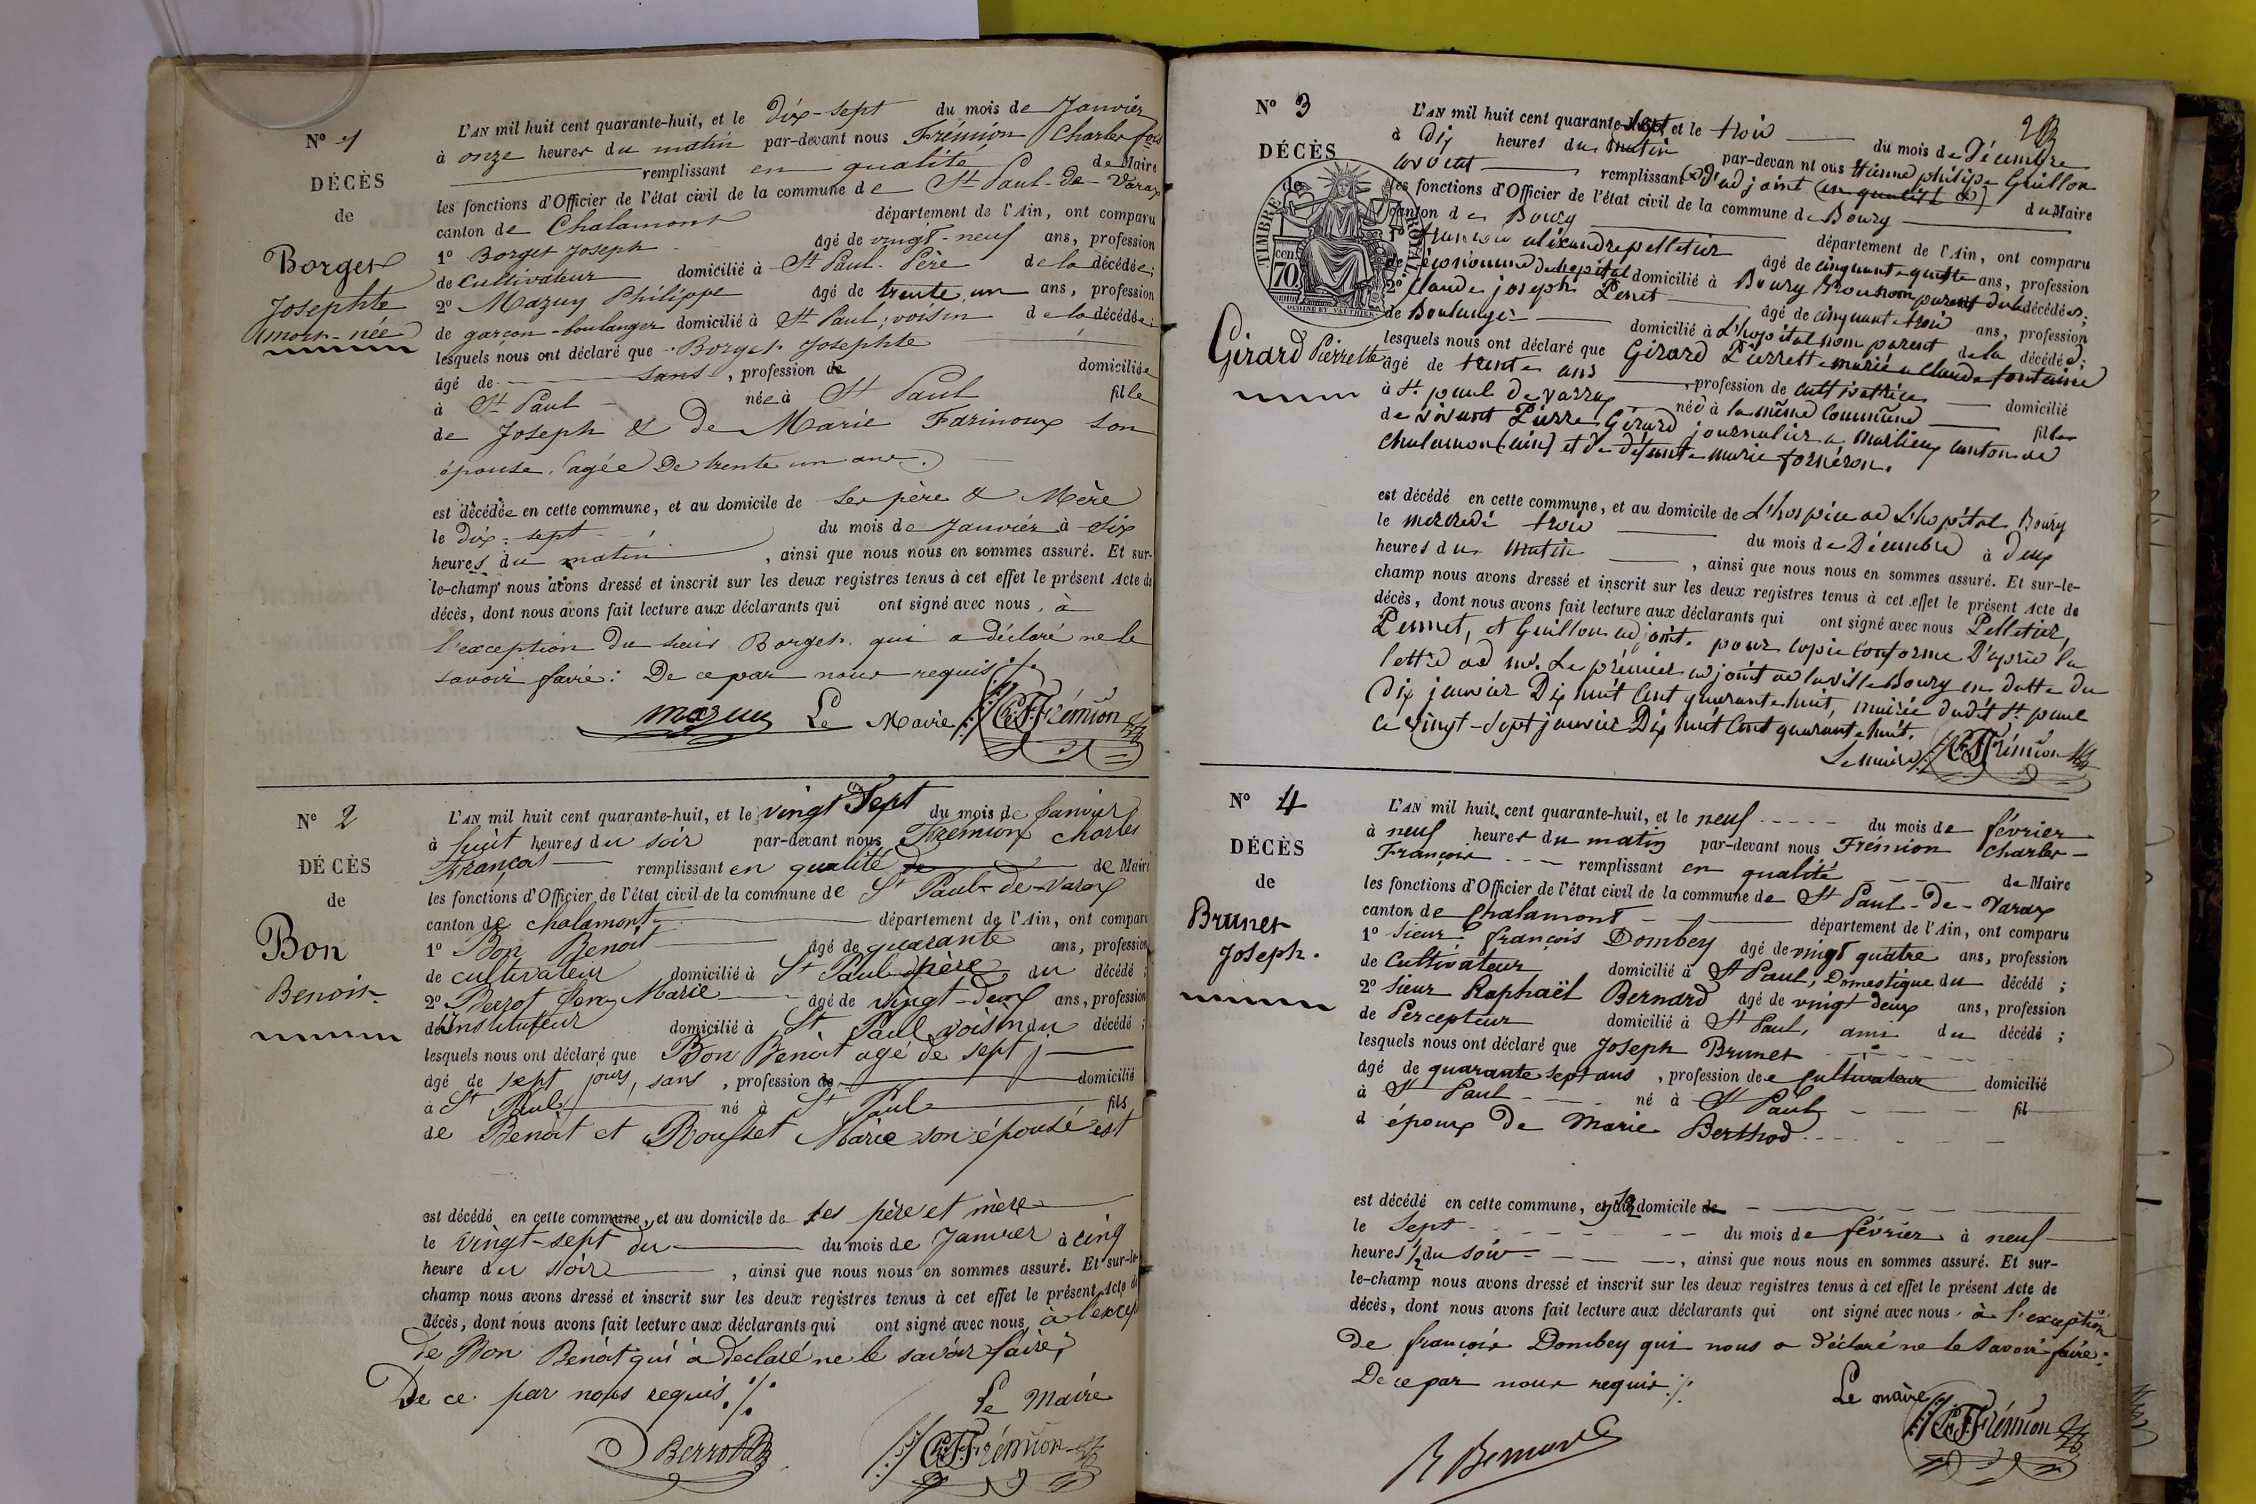 N° 1
DÉCÈS
de
Borget
Josephte
mort-née
L'AN mil huit cent quarante-huit, et le dix-sept du mois de Janvier
à onze heures du matin par-devant nous Frémion Charles fois
remplissant en qualité de Maire
les fonctions d'Officier de l'état civil de la commune de St Paul-de-Varax
canton de Chalamont département de l'Ain, ont comparu
1° Borget Joseph âgé de vingt-neuf ans, profession
de Cultivateur domicilié à St Paul. Père de la décédée;
2° Mazuy Philippe âgé de trente un ans, profession
de garçon-boulanger domicilié à St Paul; voisin de la décédée;
lesquels nous ont déclaré que Borget Josephte
âgé de sans, profession de domiciliée
à St Paul née à St Paul fille
de Joseph & de Marie Farinoux son
épouse. (agée de trente un ans.)
est décédée en cette commune, et au domicile de ses père & Mère
le dix-sept du mois de Janvier à six
heures du matin, ainsi que nous nous en sommes assuré. Et sur-
le-champ nous avons dressé et inscrit sur les deux registres tenus à cet effet le présent Acte de
décès, dont nous avons fait lecture aux déclarants qui ont signé avec nous, à
l'exception du sieur Borget qui a déclaré ne le
savoir faire: De ce par nous requis
mazuy Le Maire Ch. F. Frémion
N° 2
DÉCÈS
de
Bon
Benoit
L'AN mil huit cent quarante-huit, et le vingt Sept du mois de Janvier
à huit heures du soir par-devant nous Frémion Charles
François remplissant en qualité de de Maire
les fonctions d'Officier de l'état civil de la commune de St Paul-de-Varax
canton de chalamont département de l'Ain, ont comparu
1° Bon Benoit âgé de quarante ans, profession
de cultivateur domicilié à St Paul père du décédé;
2° Berrot Marie âgé de vingt-deux ans, profession
de Instituteur domicilié à St. Paul voisin du décédé;
lesquels nous ont déclaré que Bon Benoit agé de sept j
âgé de sept jours, sans, profession de domicilié
à St Paul né à St Paul fils
de Benoit et Rousset Marie son épouse est
est décédé en cette commune, et au domicile de ses père et mère
le vingt-sept du du mois de Janvier à cinq
heure du soir, ainsi que nous nous en sommes assuré. Et sur-le-
champ nous avons dressé et inscrit sur les deux registres tenus à cet effet le présent Acte de
décès, dont nous avons fait lecture aux déclarants qui ont signé avec nous, à l'excep
de Bon Benoit qui a declaré ne le savoir faire,
De ce par nous requis. Le Maire
Berrot Ch. F. Frémion
N° 3
DÉCÈS
de
TIMBRE ROYAL
70 cen
Girard Pierrette
L'AN mil huit cent quarante sept et le trois du mois de Décembre
à dix heures du matin par-devant nous Etienne philipe Guillon
avocat remplissant d'adjoint (en qualité) du Maire
les fonctions d'Officier de l'état civil de la commune de Bourg
canton de Bourg département de l'Ain, ont comparu
1° francois alexandre pelletier âgé de cinquante quatre ans, profession
de économme de hopital domicilié à Bourg non parent du décédée;
2° Claude joseph Perret âgé de cinquante trois ans, profession
de Boulanger domicilié à L'hopital nom parent de la décédé;
lesquels nous ont déclaré que Girard Pierrette mariée a Claude fontaine
âgé de trente ans, profession de cultivatrice domicilié
à St. paul de varax né à la même Commune fille
de vivant Pierre Girard journalier a marlieux canton de
chalamon (ain) et de défunte marie fornéron.
est décédé en cette commune, et au domicile de L'hospice de L'hopital Bourg
le mercredi trois du mois de Décembre à deux
heures du matin, ainsi que nous nous en sommes assuré. Et sur-le-
champ nous avons dressé et inscrit sur les deux registres tenus à cet effet le présent Acte de
décès, dont nous avons fait lecture aux déclarants qui ont signé avec nous Pelletier,
Perret, et Guillon adjoint. pour copie conforme D'après la
lettre de mr. Le prémier adjoint de la ville Bourg en datte du
Dix janvier Dix huit Cent quarante huit, mairie dudit St. paul
ce vingt-sept janvier Dix huit Cent quarante huit.
Le maire Ch. F. Frémion
N° 4
DÉCÈS
de
Brunet
Joseph.
L'AN mil huit cent quarante-huit, et le neuf du mois de février
à neuf heures du matin par-devant nous Frémion Charles
François remplissant en qualité de Maire
les fonctions d'Officier de l'état civil de la commune de St Paul-de-Varax
canton de Chalamont département de l'Ain, ont comparu
1° Sieur françois Dombey âgé de vingt quatre ans, profession
de Cultivateur domicilié à St Paul, Domestique du décédé;
2° Sieur Raphaël Bernard âgé de vingt deux ans, profession
de Percepteur domicilié à St Paul, ami du décédé;
lesquels nous ont déclaré que Joseph Brunet
âgé de quarante sept ans, profession de Cultivateur domicilié
à St Paul né à St Paul fil
d époux de Marie Berthod
est décédé en cette commune, et domicile de
le Sept du mois de février à neuf
heures 1/2 du soir, ainsi que nous nous en sommes assuré. Et sur-
le-champ nous avons dressé et inscrit sur les deux registres tenus à cet effet le présent Acte de
décès, dont nous avons fait lecture aux déclarants qui ont signé avec nous, à l'exception
de françois Dombey qui nous a déclaré ne le savoir faire:
De ce par nous requis
Le maire
R Bernard Ch. F. Frémion